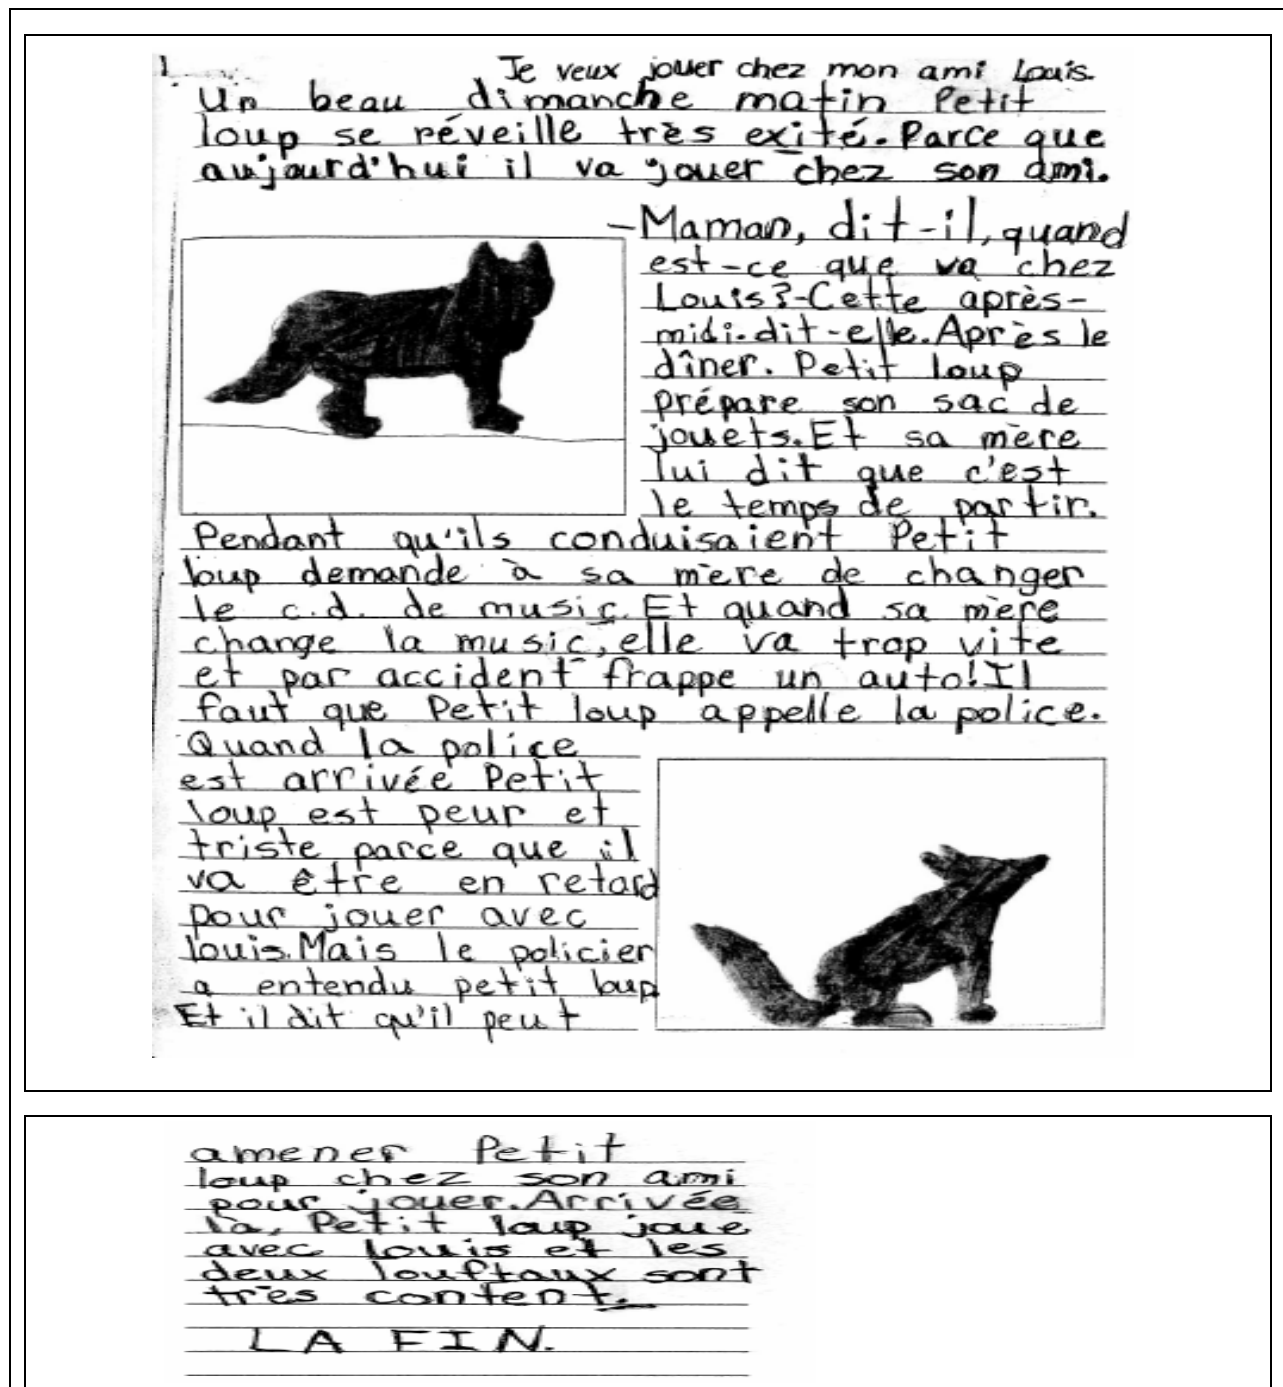 1.
Je veux jouer chez mon ami Louis.
Un beau dimanche matin Petit
loup se réveille très exité. Parce que
aujourd'hui il va jouer chez son ami.
-Maman, dit-il, quand
est-ce que va chez
Louis?-Cette après-
midi.dit-elle.Après le
dîner. Petit loup
prépare son sac de
jouets.Et sa mère
lui dit que c'est
le temps de partir.
Pendant qu'ils conduisaient Petit
loup demande à sa mère de changer
le c.d. de music. Et quand sa mère
change la music, elle va trop vite
et par accident frappe un auto!Il
faut que Petit loup appelle la police.
Quand la police
est arrivée Petit
loup est peur et
triste parce que il
va être en retard
pour jouer avec
louis.Mais le policier
a entendu petit loup
Et il dit qu'il peut
amener Petit
loup chez son ami
pour jouer.Arrivée
là, Petit loup joue
avec louis et les
deux louftaux sont
très content.
LA FIN.